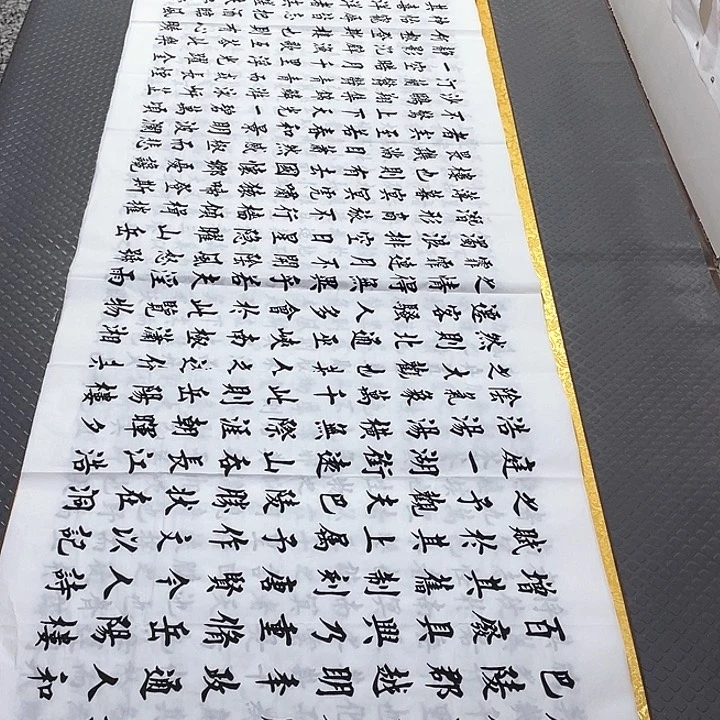 巴陵郡越明年政通人和
百廢具興乃重脩岳陽樓
增其舊制刻唐賢今人詩
賦於其上屬予作文以記
之予觀夫巴陵勝狀在洞
庭一湖銜遠山吞長江浩
浩湯湯橫無際涯朝暉夕
陰氣象萬千此則岳陽樓
之大觀也前人之述備矣
然則北通巫峽南極瀟湘
遷客騷人多會於此覽物
之情得無異乎若夫淫雨
霏霏連月不開陰風怒號
濁浪排空日星隱耀山岳
潛形商旅不行檣傾楫摧
薄暮冥冥虎嘯猿啼登斯
樓也則有去國懷鄉憂讒
畏譏滿目蕭然感極而悲
者矣至若春和景明波瀾
不驚上下天光一碧萬頃
沙鷗翔集錦鱗游泳岸芷
汀蘭郁郁青青而或長煙
一空皓月千里浮光躍金
靜影沉璧漁歌互答此樂
何極登斯樓也則有心曠
神怡寵辱偕忘把酒臨風